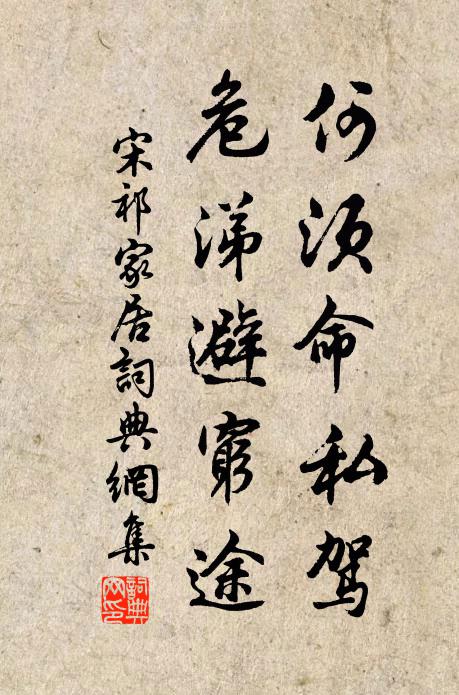 何須命私駕
危涕避窮途
宋祁家居詞典網集
詞典网印